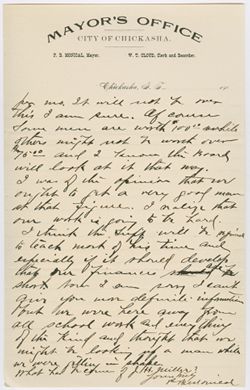 MAYOR'S OFFICE
CITY OF CHICKASHA.
T. D. MONICAL, Mayor. W. T. CLOUD, Clerk and Recorder.
Chickasha, I. T.
per mo. It will not be over
this I am sure. Of course
Some men are worth 100.00 while
others might not be worth over
75.00 and I know the Board
will look at it that way.
I was of the opinion that we
ought to get a very good man
at that figure. I realize that
our work is going to be hard.
I think the Supt will be required
to teach most of his time and
especially if it should develop
that our finances
short too. I am sorry I cant
give you more definite information
but we were here away from
all school work and everything
of the kind and thought that we
might be looking for a man while
we were getting in shape.
What has become of J. H. Miller?
Yours truly